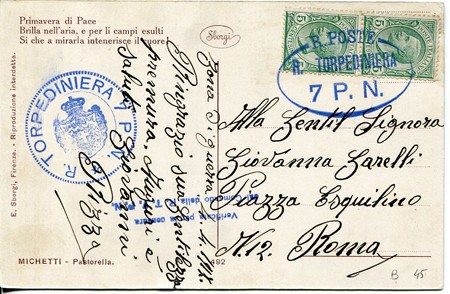 Primavera di Pace
Brilla nell'aria, e per li campi esulti
Sì che a mirarla intenerisce il cuore
Sborgi
5
5
R. POSTE
R. TORPEDINIERA
7 P. N.
R. TORPEDINIERA 7 P. N.
E. Sborgi, Firenze. - Riproduzione interdetta.
Zona di guerra
Ringrazio sua gentilezza
premura. Auguri a
Saluti
Giovanni
Pizza
Verificata per censura
Il Comando della R. T.
Alla Gentil Signora
Giovanna Zarelli
Piazza Esquilino
N. 12. Roma
MICHETTI - Pastorella.
492
B 45